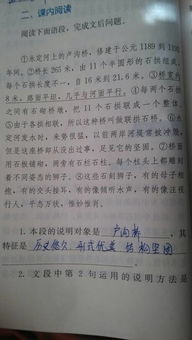 二、课内阅读
阅读下面语段，完成文后问题。
①永定河上的卢沟桥，修建于公元1189到1192
年间。②桥长265米，由11个半圆形的石拱组成，
每个石拱长度不一，自16米到21.6米。③桥宽约
8米，路面平坦，几乎与河面平行。④每两个石拱
之间有石砌桥墩，把11个石拱联成一个整体。
⑤由于各拱相联，所以这种桥叫做联拱石桥。⑥永
定河发水时，来势很猛，以前两岸河堤常被冲毁，
但是这座桥却从没出过事，足见它的坚固。⑦桥面
用石板铺砌，两旁有石栏石柱。每个柱头上都雕刻
着不同姿态的狮子。⑧这些石刻狮子，有的母子相
抱，有的交头接耳，有的像倾听水声，有的像注视
行人，千态万状，惟妙惟肖。
1. 本段的说明对象是 卢沟桥 ，其
特征是 历史悠久、形式优美、结构坚固
2. 文段中第2句运用的说明方法是